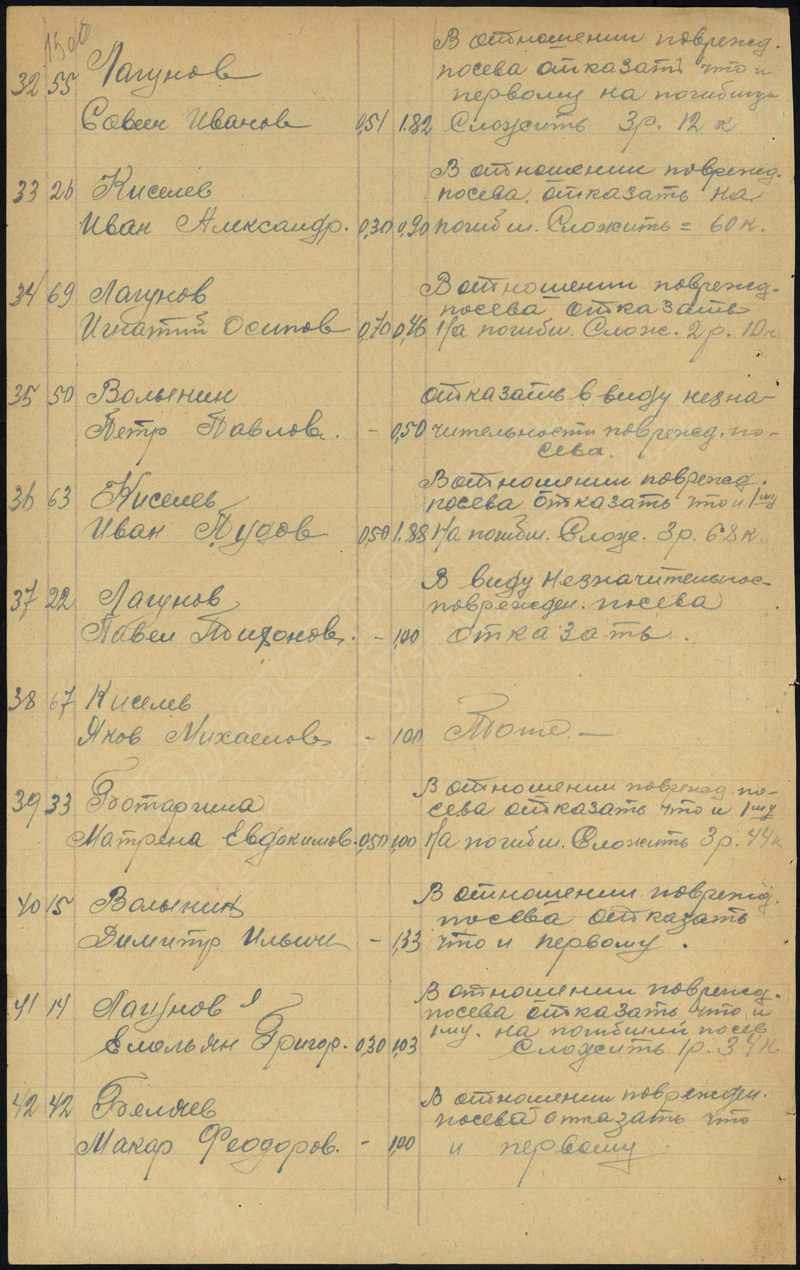 1500
В отношении поврежд.
32 55 Лагунов посева отказать что и
первому на погибший
Савел Иванов 0,51 1.82 Сложить 3 р. 12 к
В отношении поврежд.
33 26 Киселев посева отказать на
Иван Александр. 0,30 0,90 погибш. Сложить = 60 к.
В отношении поврежд.
34 69 Лагунов посева отказать
Игнатий Осипов 0,70 0,46 На погибш. Слож. 2 р. 10 к
35 50 Волынин отказать в виду незна-
Петр Павлов. - 0,50 чительности поврежд. по-
сева.
В отношении поврежд.
36 63 Киселев посева отказать что и 1му
Иван Пудов 0,50 1.88 На погибш. Слож. 3 р. 68 к.
В виду незначительнос-
37 22 Лагунов поврежден. посева
Павел Тихонов. - 1,00 отказать.
38 67 Киселев
Яков Михаелов - 1,00 Тоже. —
В отношении поврежд по-
39 33 Ботаргина сева отказать что и 1му
Матрена Евдокимов. 0,50 1,00 На погибш. Сложить 3 р. 44 к
В отношении поврежд.
40 15 Волынин посева отказать
Димитр Ильич - 1,33 что и первому.
В отношении поврежд.
41 14 Лагунов посева отказать что и
1му. на погибший посев
Емельян Григор. 0,30 1,03 Сложить 1 р. 34 к
В отношении поврежден.
42 42 Беляев посева отказать что
Макар Феодоров. - 1,00 и первому